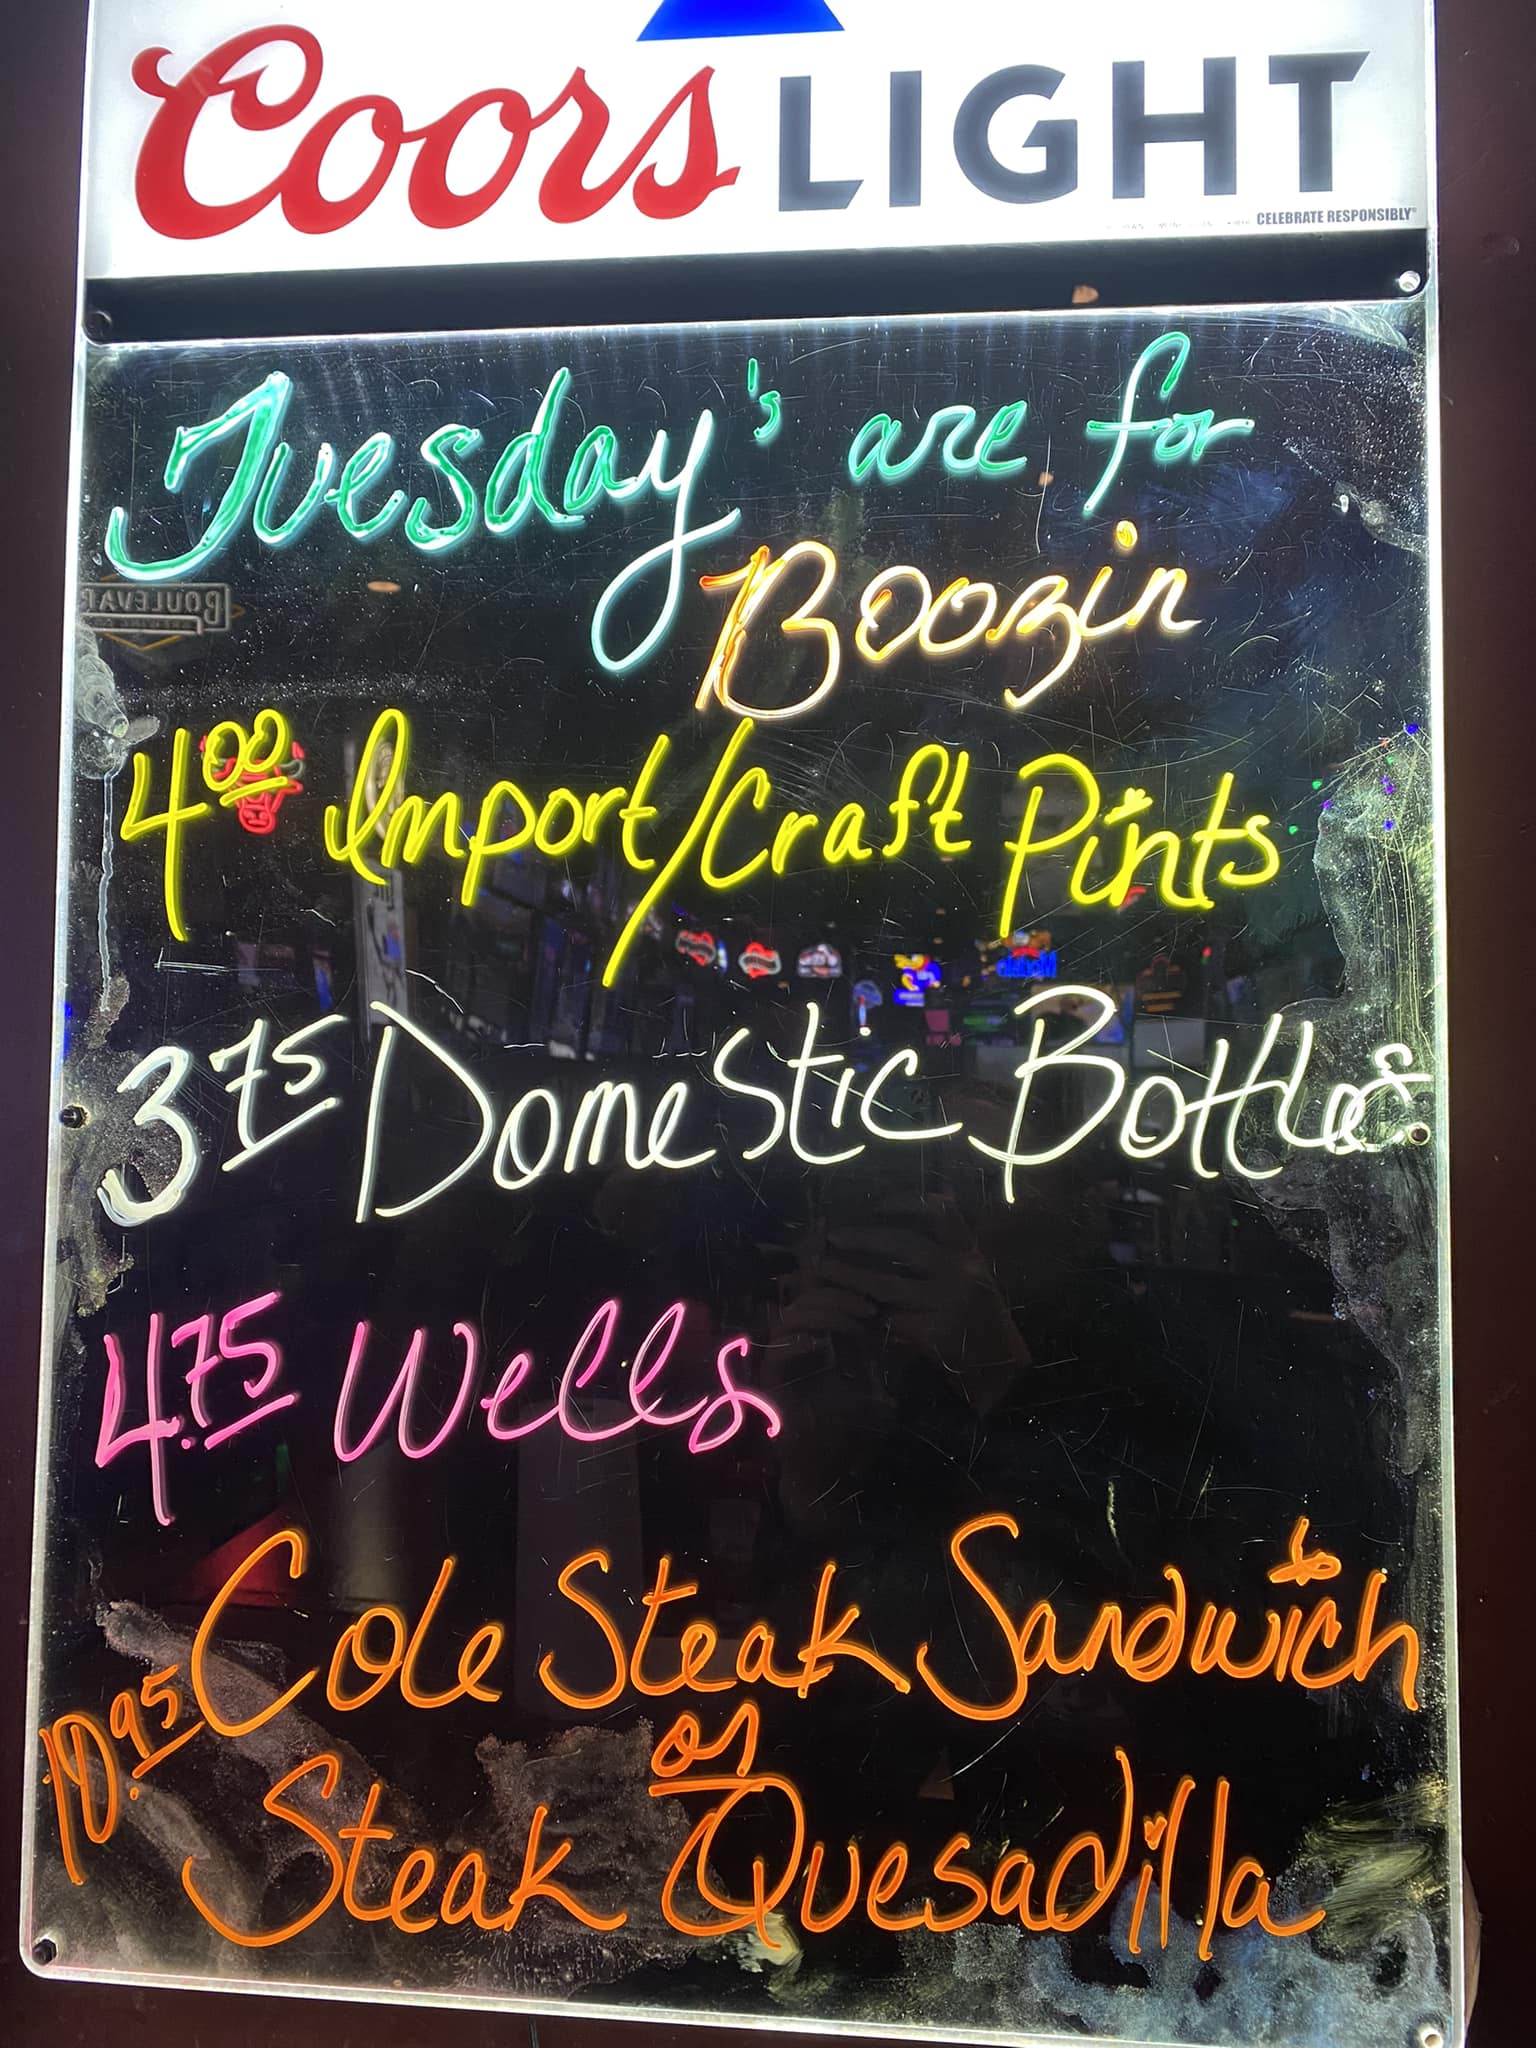 Coors LIGHT
CELEBRATE RESPONSIBLY®
Tuesday's are for
Boozin
4.00 Import/Craft Pints
3.75 Domestic Bottles
4.75 Wells
Cole Steak Sandwich
10.95
or
Steak Quesadilla
BOULEVAR